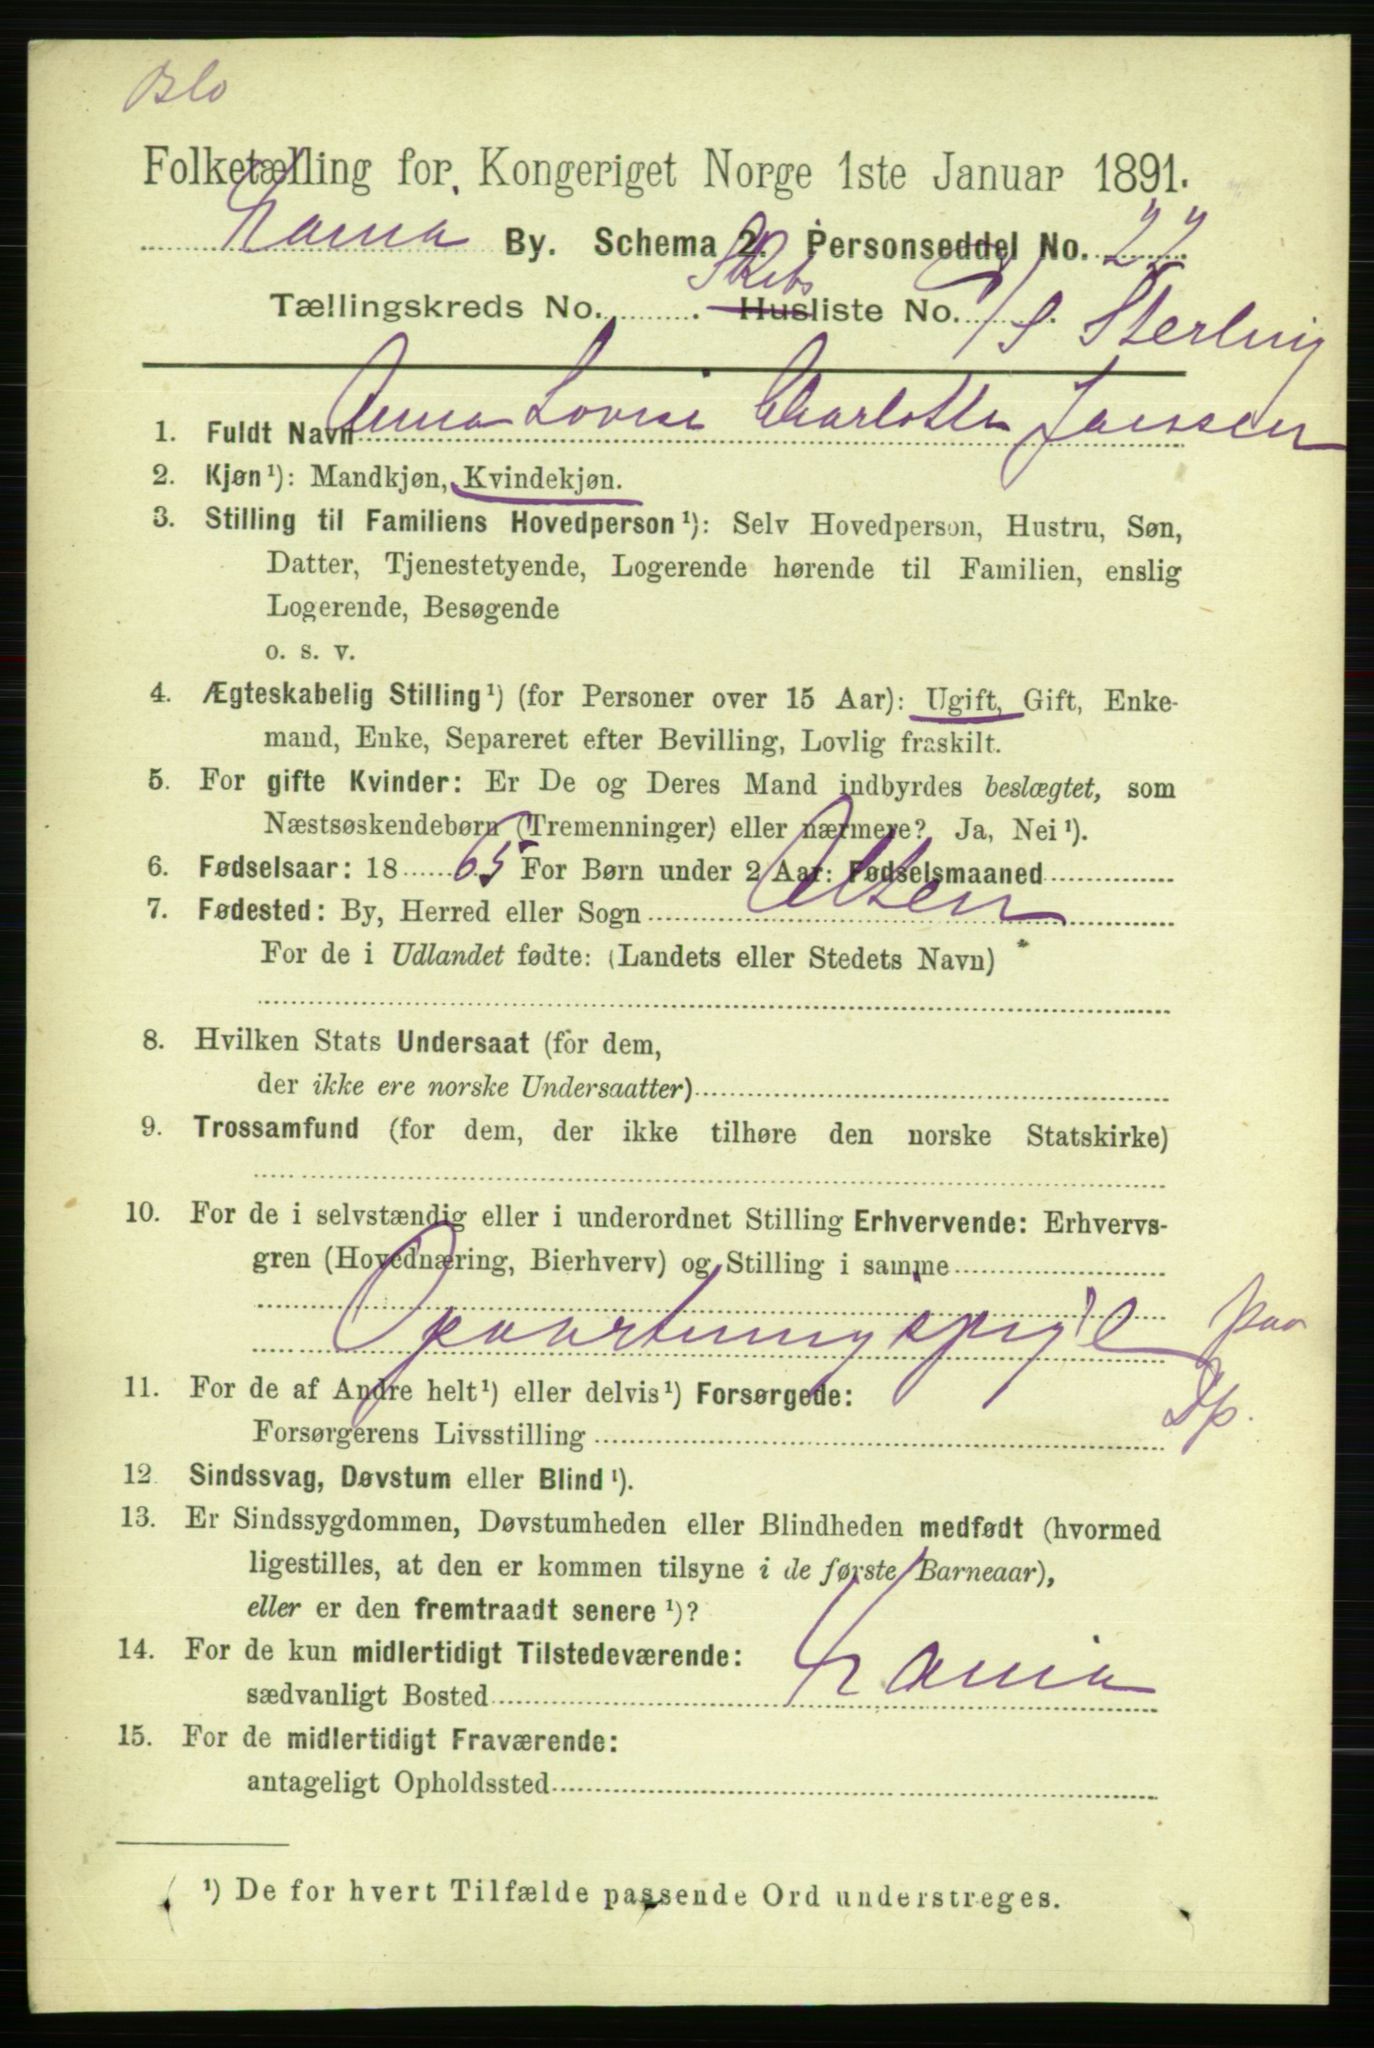 Folketælling for Kongeriget Norge 1ste Januar 1891.
By. Schema 2. Personseddel No. 22
Skibs
Tællingskreds No. . Husliste No. D/S Sterling
1. Fuldt Navn Anna Lovise Charlotte Janssen
2. Kjøn ¹): Mandkjøn, Kvindekjøn.
3. Stilling til Familiens Hovedperson ¹): Selv Hovedperson, Hustru, Søn,
Datter, Tjenestetyende, Logerende hørende til Familien, enslig
Logerende, Besøgende
o. s. v.
4. Ægteskabelig Stilling ¹) (for Personer over 15 Aar): Ugift, Gift, Enke-
mand, Enke, Separeret efter Bevilling, Lovlig fraskilt.
5. For gifte Kvinder: Er De og Deres Mand indbyrdes beslægtet, som
Næstsøskendebørn (Tremenninger) eller nærmere? Ja, Nei ¹).
6. Fødselsaar: 1865 For Børn under 2 Aar: Fødselsmaaned
7. Fødested: By, Herred eller Sogn Alten
For de i Udlandet fødte: (Landets eller Stedets Navn)
8. Hvilken Stats Undersaat (for dem,
der ikke ere norske Undersaatter)
9. Trossamfund (for dem, der ikke tilhøre den norske Statskirke)
10. For de i selvstændig eller i underordnet Stilling Erhvervende: Erhvervs-
gren (Hovednæring, Bierhverv) og Stilling i samme
Opvartningspige paa
Dp.
11. For de af Andre helt ¹) eller delvis ¹) Forsørgede:
Forsørgerens Livsstilling
12 Sindssvag, Døvstum eller Blind ¹).
13. Er Sindssygdommen, Døvstumheden eller Blindheden medfødt (hvormed
ligestilles, at den er kommen tilsyne i de første Barneaar),
eller er den fremtraadt senere ¹)?
14. For de kun midlertidigt Tilstedeværende:
sædvanligt Bosted
15. For de midlertidigt Fraværende:
antageligt Opholdssted
¹) De for hvert Tilfælde passende Ord understreges.